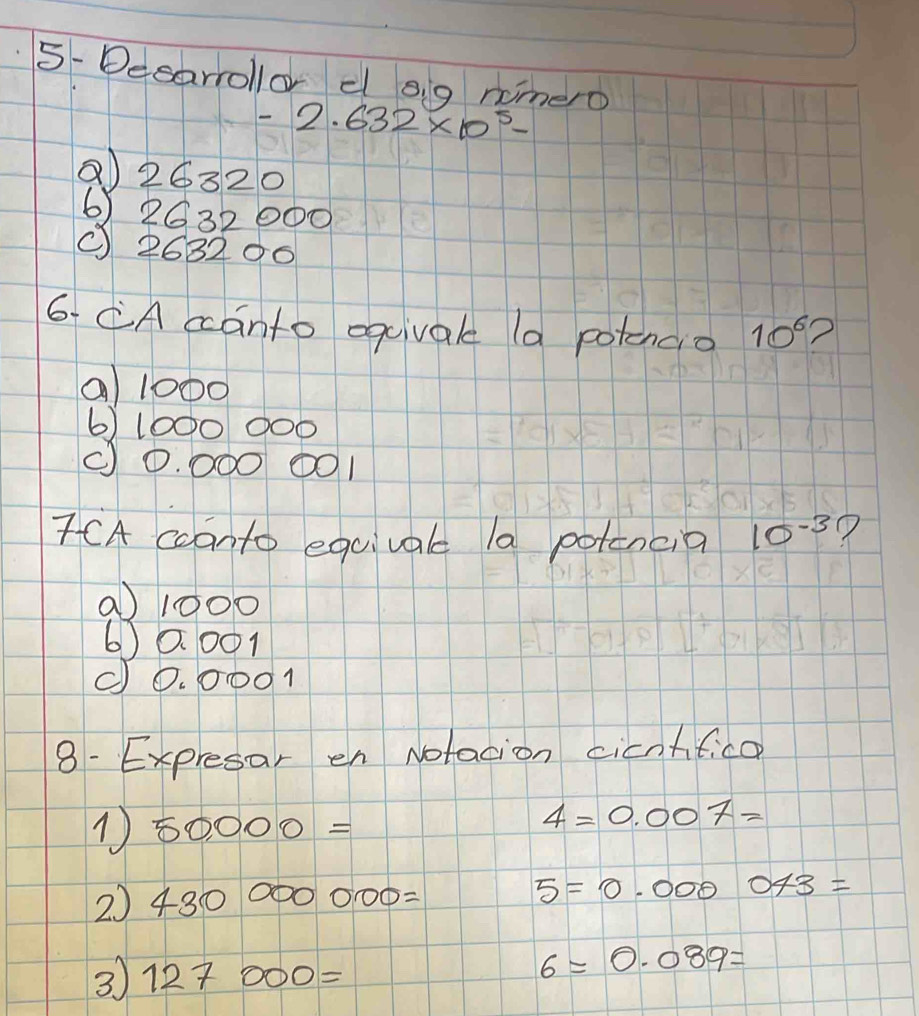 5- Desarrollar el sig número
- 2.632 × 10⁵-
a) 26320
b) 2632 000
c) 263200
6- ¿A cuánto equivale la potencia 10⁶?
a) 1000
b) 1000 000
c) 0.000 001
7- ¿A cuánto equivale la potencia 10⁻³?
a) 1000
b) 0.001
c) 0.0001
8- Expresar en Notacion cientifica
1) 50,000 =
4 = 0.007 =
2) 430 000 000 =
5 = 0.000 043 =
3) 127 000 =
6 = 0.089 =